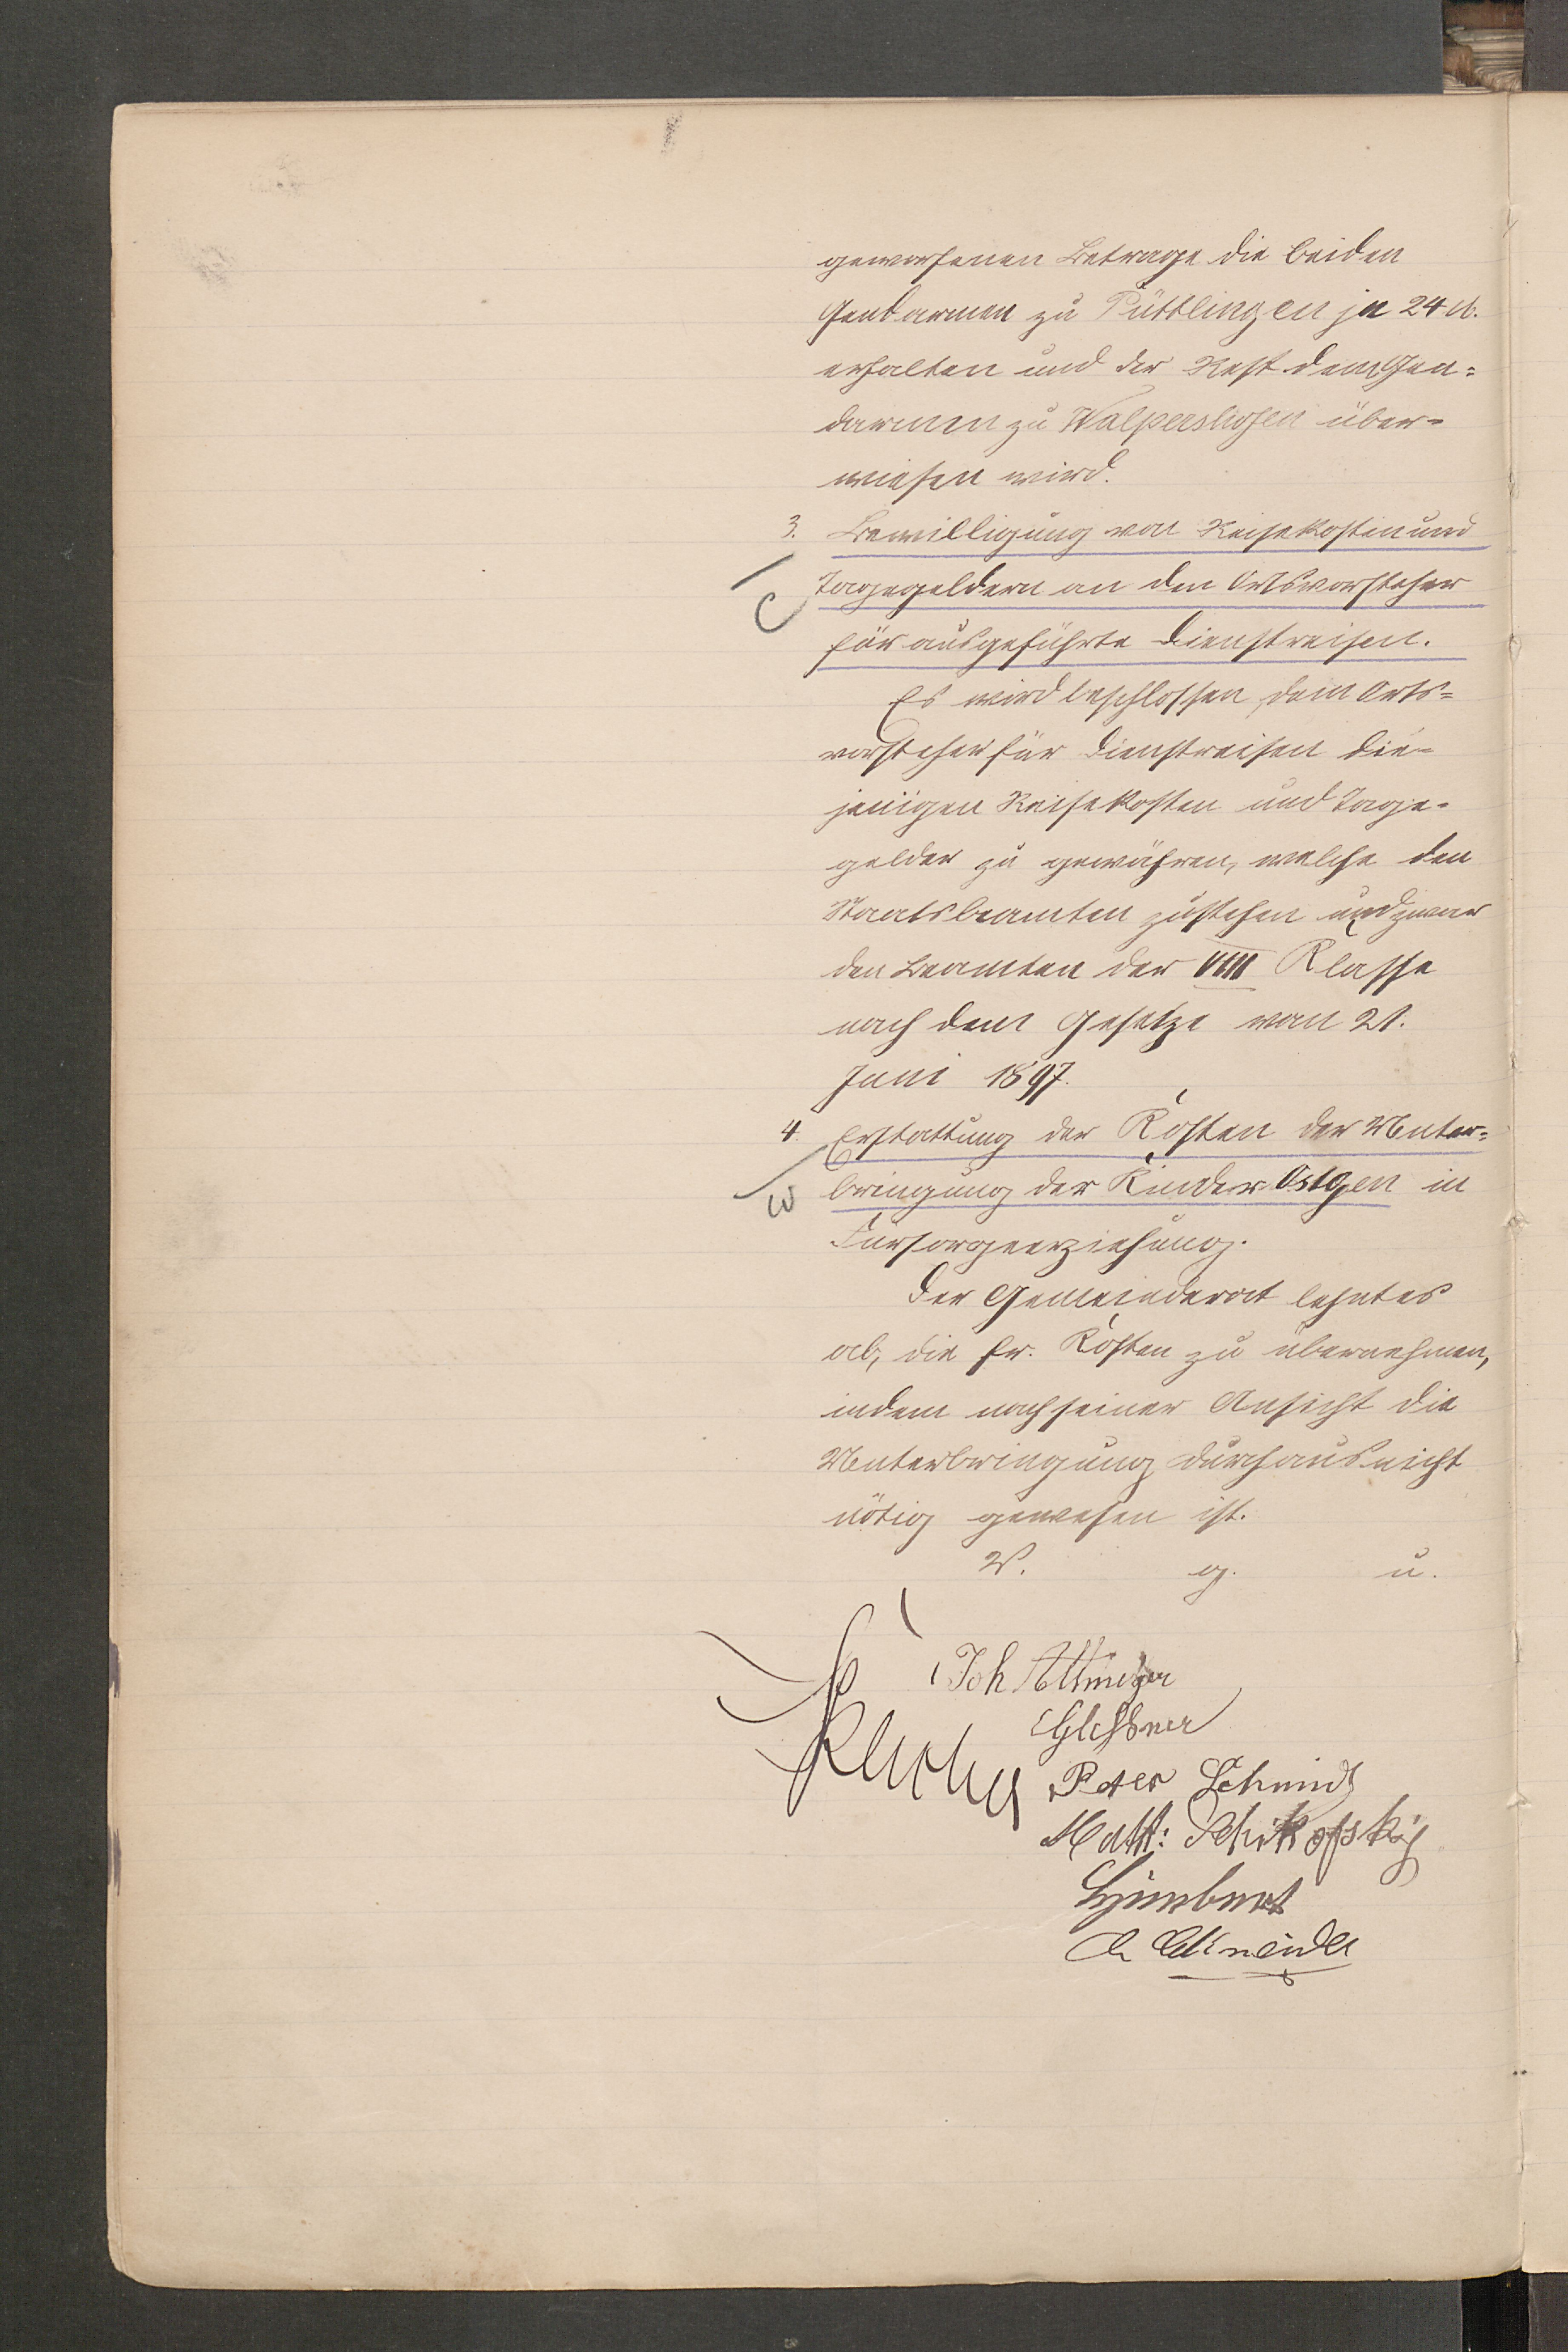 geworfenen Betrage die beiden
Gendarmen zu Püttlingen je 24 M.
erhalten und der Rest dem Gen=
darmen zu Walpershofen über=
wiesen wird.
3. Bewilligung von Reisekosten und
Tagegeldern an den Ortsvorsteher
für ausgeführte Dienstreisen.
Es wird beschlossen, dem Orts=
vorsteher für Dienstreisen die=
jenigen Reisekosten und Tage=
gelder zu gewähren, welche den
Staatsbeamten zustehen und zwar
den Beamten der VIII Klasse
nach dem Gesetze vom 21.
Juni 1897.
4. Erstattung der Kosten der Unter=
bringung der Kinder Ostgen in
Fürsorgeerziehung.
Der Gemeinderat lehnt es
ab, die fr. Kosten zu übernehmen,
indem nach seiner Ansicht die
Unterbringung durchaus nicht
nötig gewesen ist.
V. g. u.
Joh Altmeyer
Glessner
Peter Schmidt
Math: Schikofsky
Himbert
Schneider